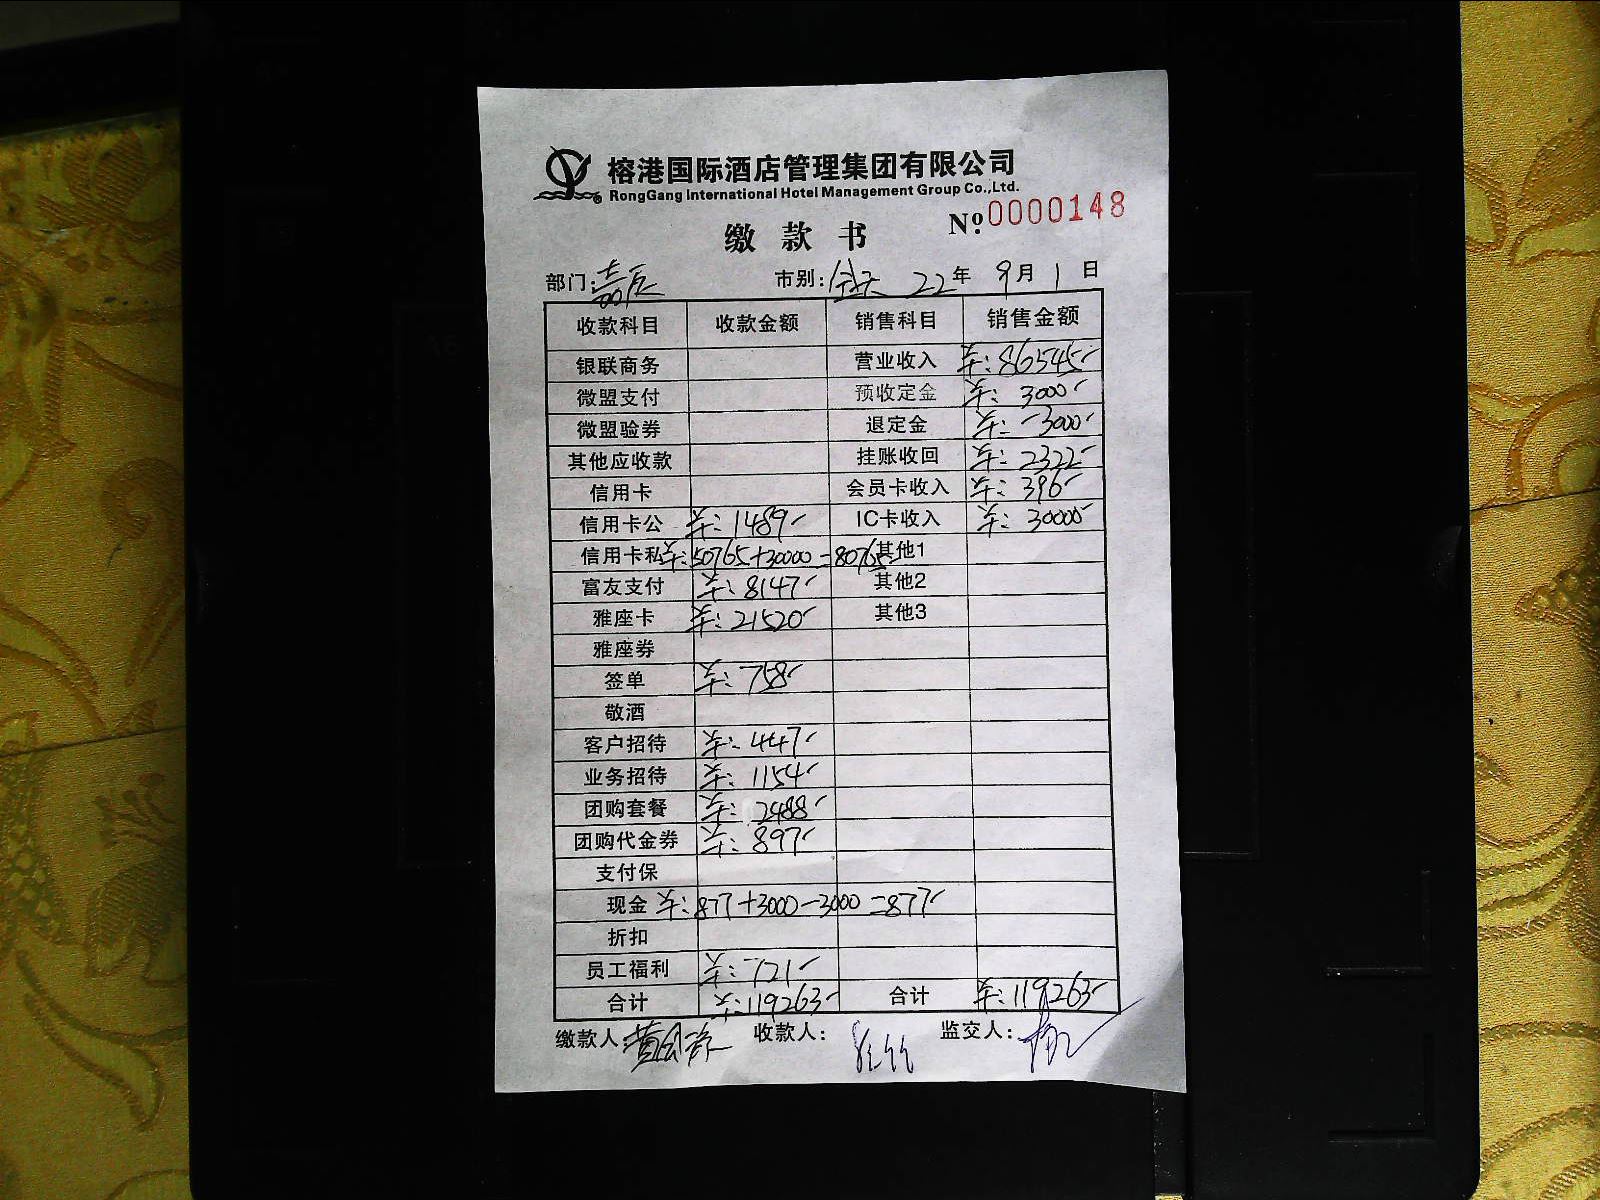 榕港国际酒店管理集团有限公司
RongGang International Hotel Management Group Co.,Ltd.
缴款书 №0000148
部门:嘉辰 市别:全天 22年9月1日
收款科目 收款金额 销售科目 销售金额
银联商务 营业收入 夫:86545-
微盟支付 预收定金 夫:3000-
微盟验券 退定金 夫:-3000-
其他应收款 挂账收回 夫:2322-
信用卡 会员卡收入 夫:396-
信用卡公 夫:1489- IC卡收入 夫:30000-
信用卡私 夫:50765+30000=80765- 其他1
富友支付 夫:8147- 其他2
雅座卡 夫:21520- 其他3
雅座券
签单 夫:758-
敬酒
客户招待 夫:447-
业务招待 夫:1154-
团购套餐 夫:2488-
团购代金券 夫:897-
支付保
现金 夫:877+3000-3000=877-
折扣
员工福利 夫:721-
合计 夫:119263- 合计 夫:119263-
缴款人: 收款人: 监交人: